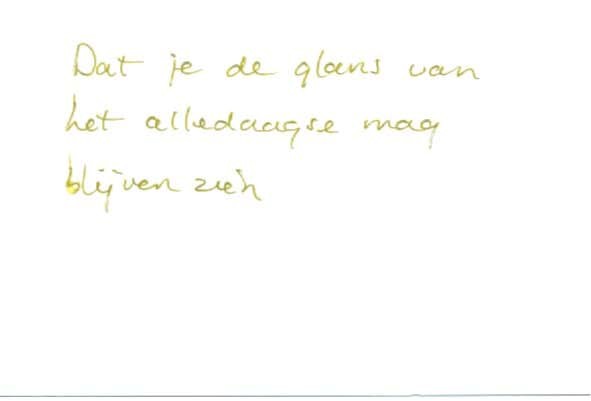 Dat je de glans van
het alledaagse mag
blijven zien